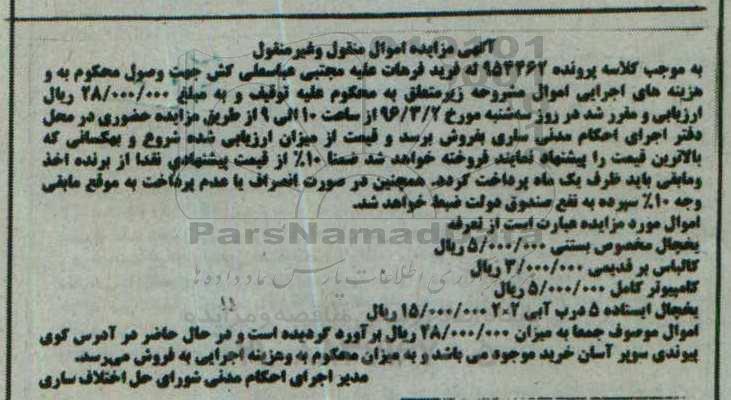 آگهی مزایده اموال منقول وغیرمنقول
به موجب کلاسه پرونده ۹۵۴۴۶۲ له فرید فرهات علیه مجتبی عباسعلی کش جهت وصول محکوم به و
هزینه های اجرایی اموال مشروحه زیرمتعلق به محکوم علیه توقیف و به مبلغ ۲۸/۰۰۰/۰۰۰ ریال
ارزیابی و مقرر شد در روز سه‌شنبه مورخ ۹۶/۳/۲ از ساعت ۱۰ الی ۹ از طریق مزایده حضوری در محل
دفتر اجرای احکام مدنی ساری بفروش برسد و قیمت از میزان ارزیابی شده شروع و بهکسانی که
بالاترین قیمت را پیشنهاد نمایند فروخته خواهد شد ضمنا ۱۰٪ از قیمت پیشنهادی نقدا از برنده اخذ
ومابقی باید ظرف یک ماه پرداخت گردد. همچنین در صورت انصراف یا عدم پرداخت به موقع مابقی
وجه ۱۰٪ سپرده به نفع صندوق دولت ضبط خواهد شد.
اموال مورد مزایده عبارت است از تعرفه
ParsNamadData
یخچال مخصوص بستنی ۵/۰۰۰/۰۰۰ ریال
کالباس بر قدیمی ۳/۰۰۰/۰۰۰ ریال
فناوری اطلاعات پارس نماد داده ها
کامپیوتر کامل ۵/۰۰۰/۰۰۰ ریال
یخچال ایستاده ۵ درب آبی ۲*۲ ۱۵/۰۰۰/۰۰۰ ریال
اموال موصوف جمعا به میزان ۲۸/۰۰۰/۰۰۰ ریال برآورد گردیده است و در حال حاضر در آدرس کوی
پیوندی سوپر آسان خرید موجود می باشد و به میزان محکوم به وهزینه اجرایی به فروش می‌رسد.
مدیر اجرای احکام مدنی شورای حل اختلاف ساری